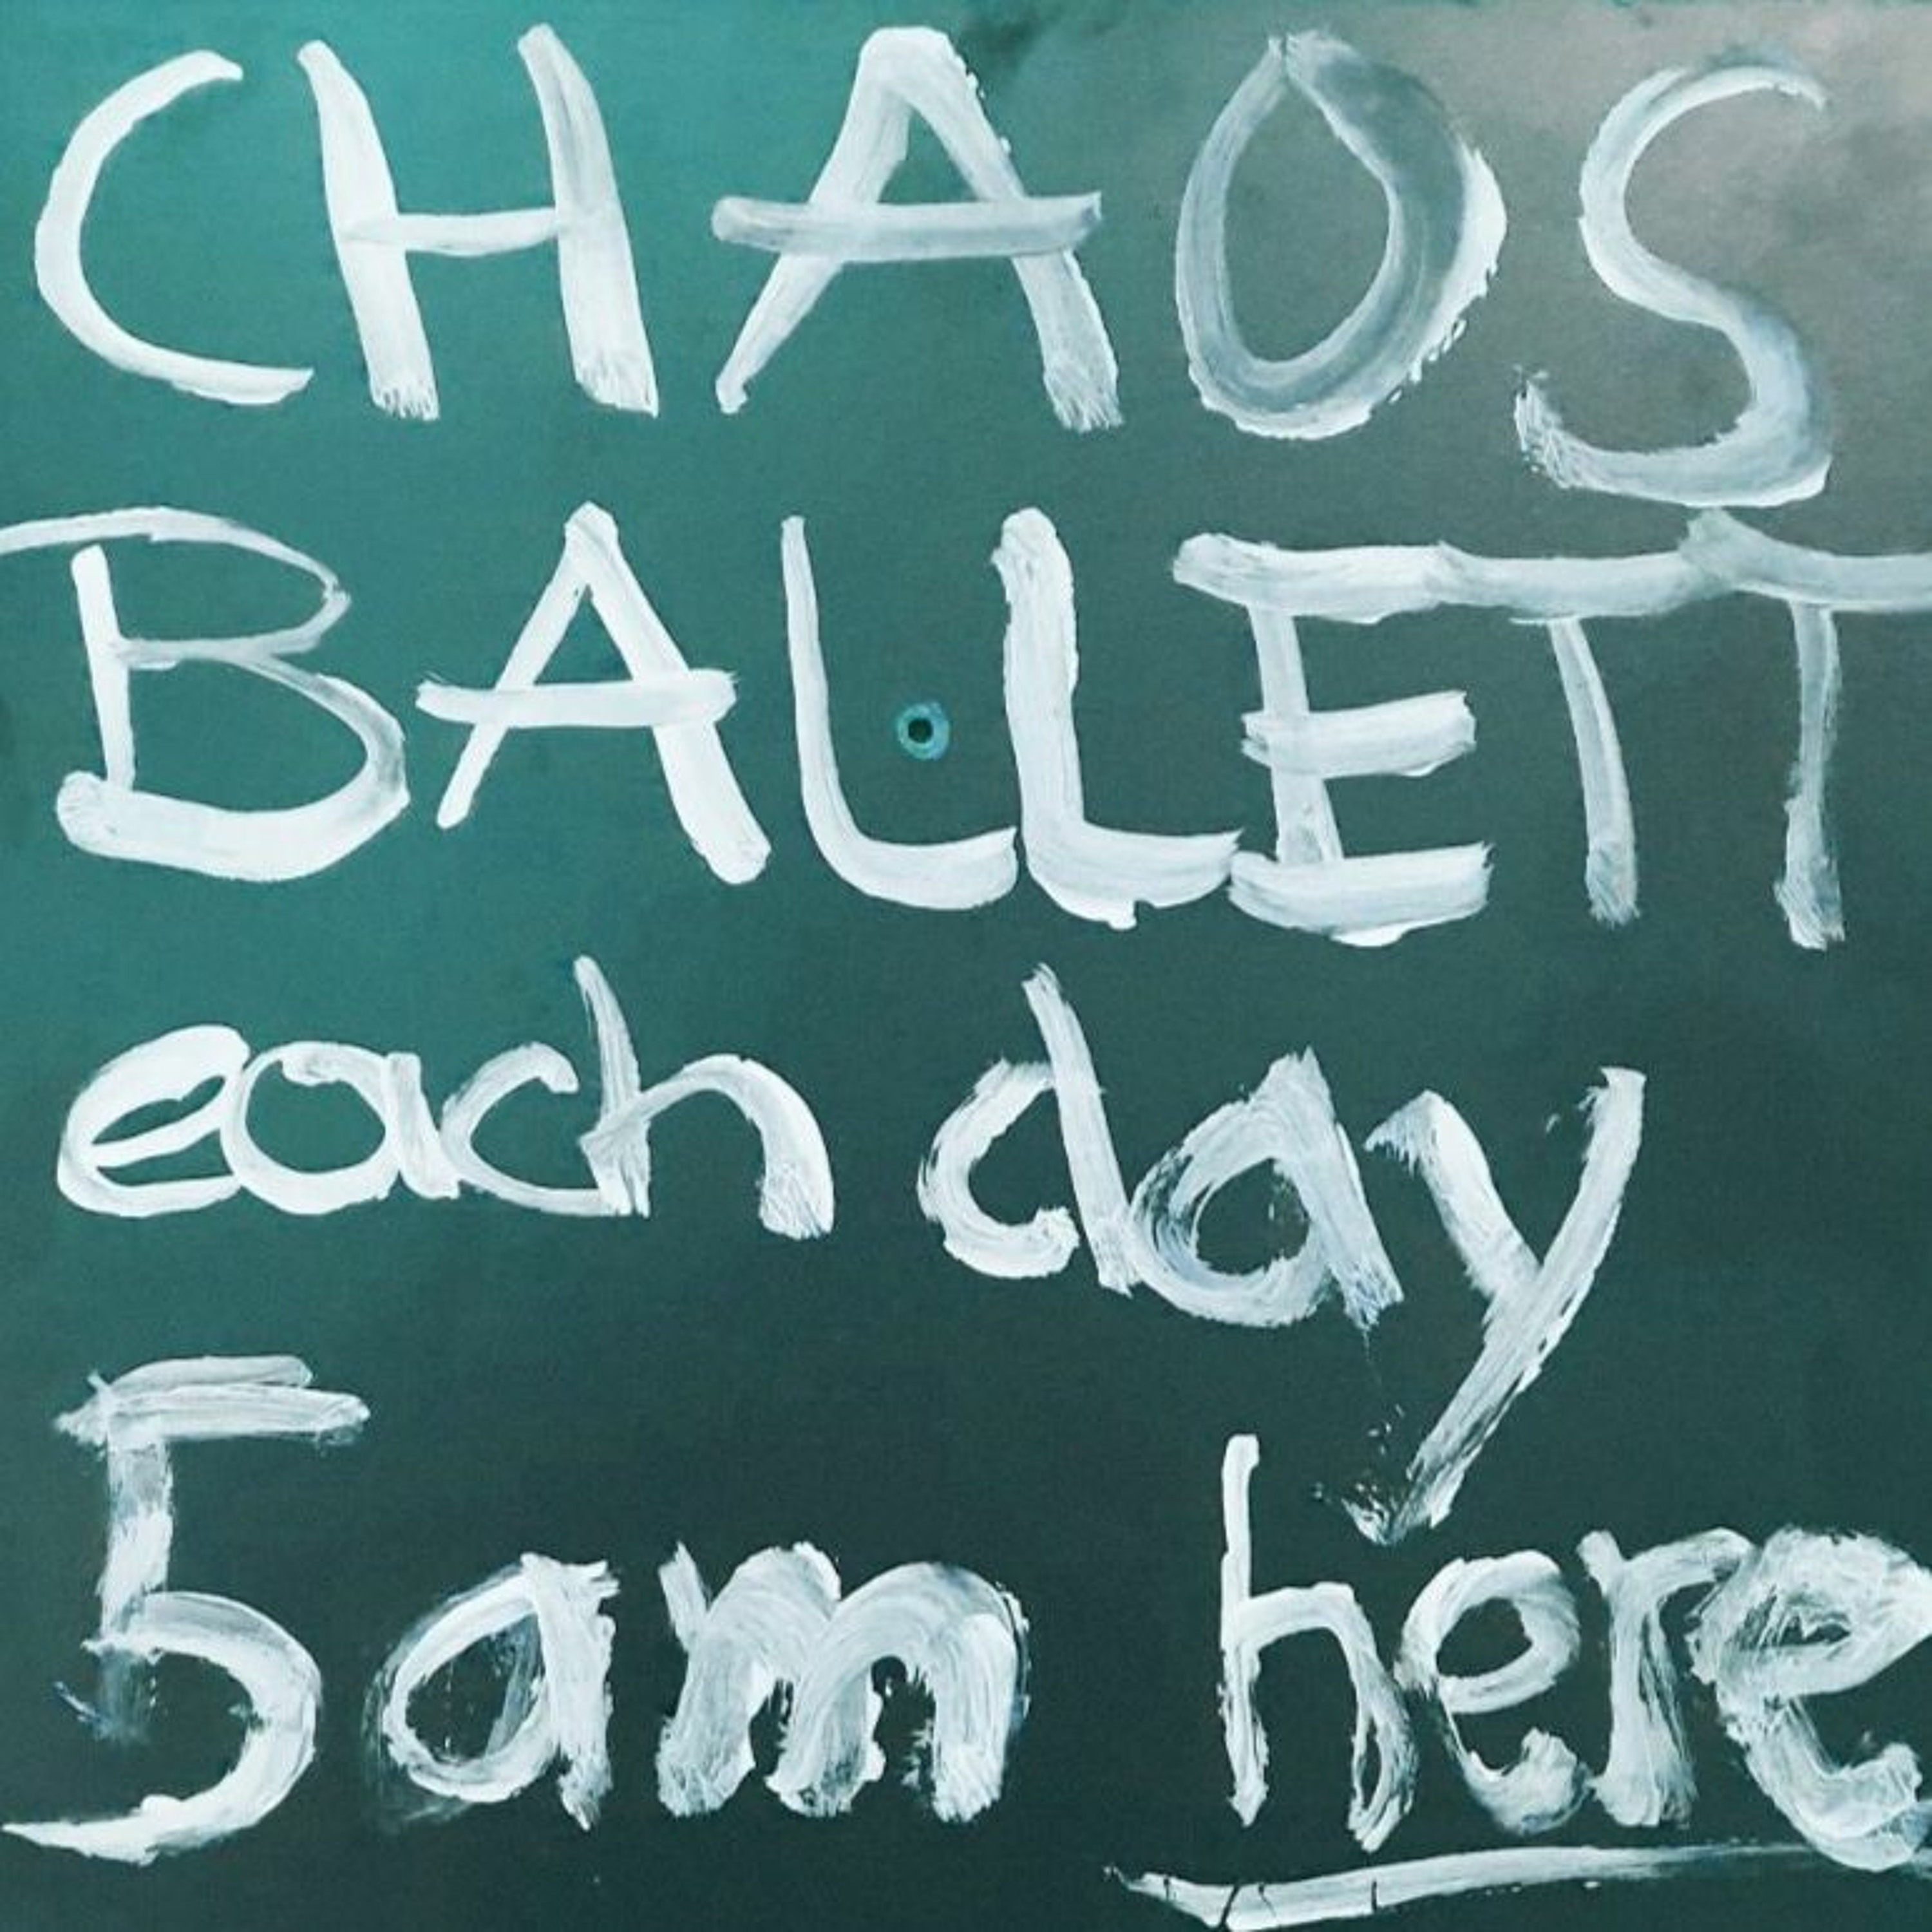 CHAOS
BALLETT
each day
5 am here